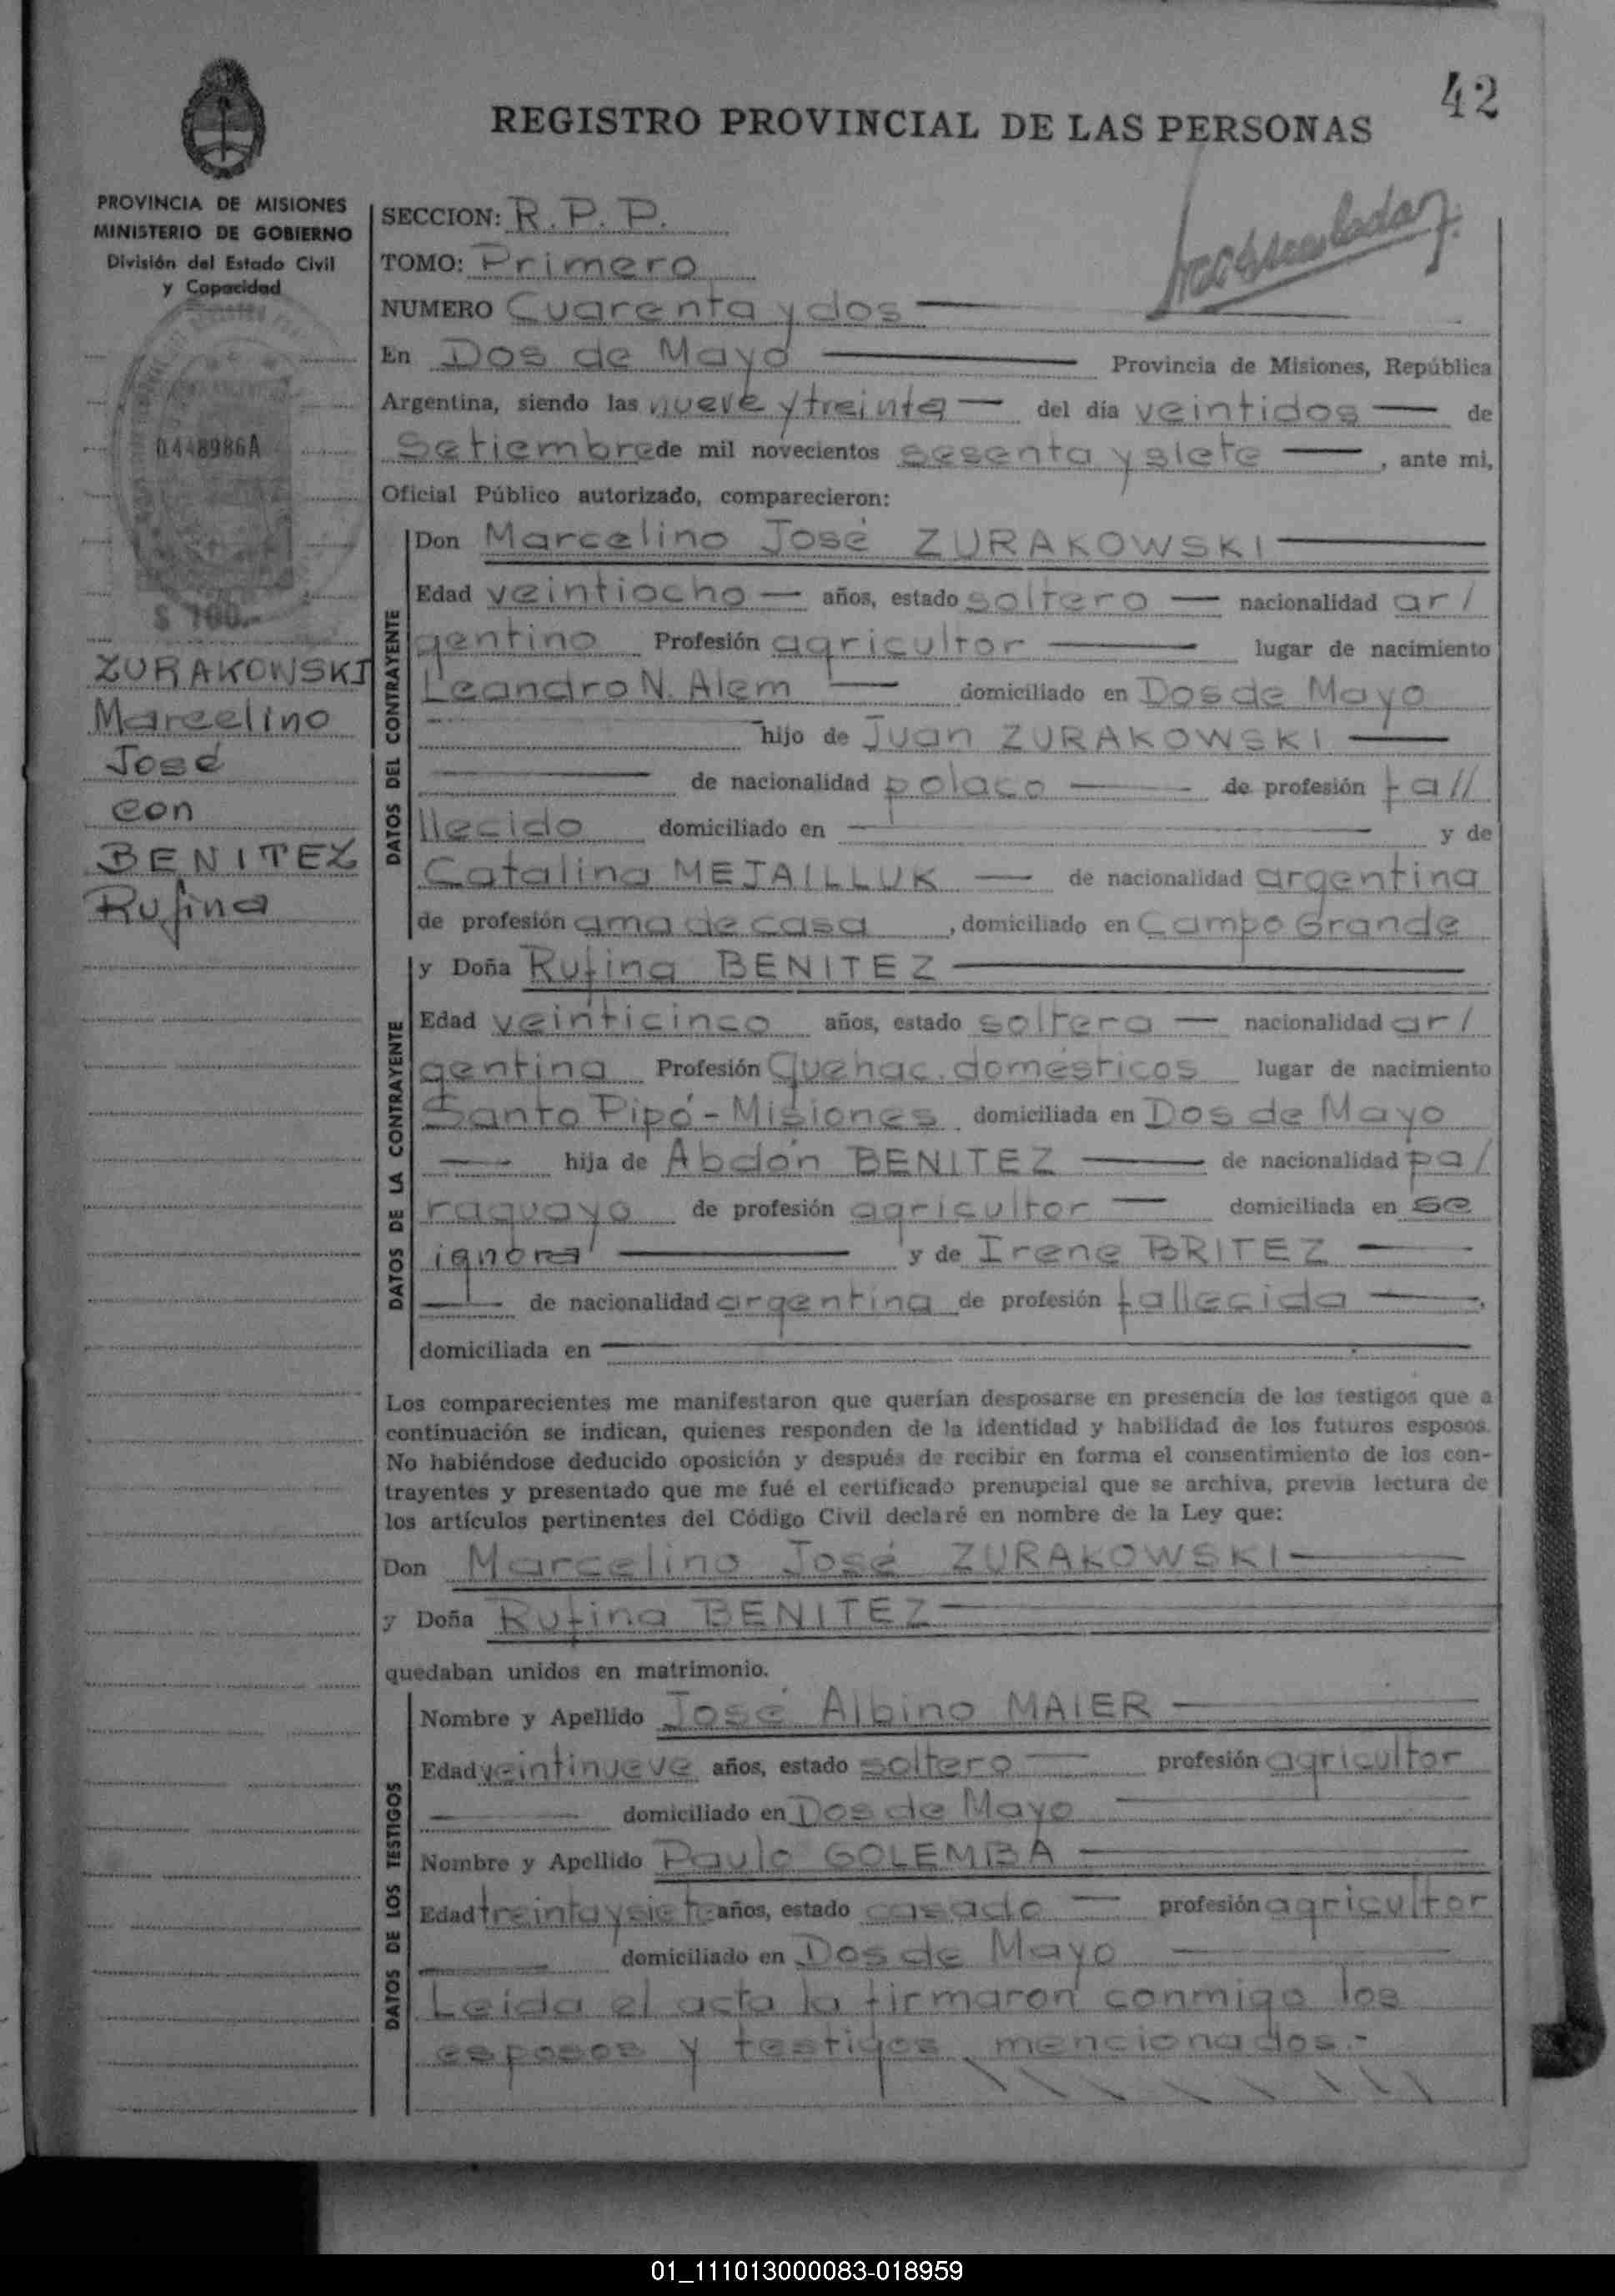 42
REGISTRO PROVINCIAL DE LAS PERSONAS
PROVINCIA DE MISIONES
MINISTERIO DE GOBIERNO
División del Estado Civil
y Capacidad
0448986A
$ 100.-
ZURAKOWSKI
Marcelino
José
con
BENITEZ
Rufina
SECCION: R. P. P.
TOMO: Primero
NUMERO Cuarenta y dos
En Dos de Mayo Provincia de Misiones, República
Argentina, siendo las nueve y treinta del día veintidos de
Setiembre de mil novecientos sesenta y siete , ante mi,
Oficial Público autorizado, comparecieron:
DATOS DEL CONTRAYENTE
Don Marcelino José ZURAKOWSKI
Edad veintiocho años, estado soltero nacionalidad ar/
gentino Profesión agricultor lugar de nacimiento
Leandro N. Alem domiciliado en Dos de Mayo
hijo de Juan ZURAKOWSKI
de nacionalidad polaco de profesión fa//
llecido domiciliado en y de
Catalina MEJAILLUK de nacionalidad argentina
de profesión ama de casa , domiciliado en Campo Grande
DATOS DE LA CONTRAYENTE
y Doña Rufina BENITEZ
Edad veinticinco años, estado soltera nacionalidad ar/
gentina Profesión Quehac. domésticos lugar de nacimiento
Santo Pipó - Misiones domiciliada en Dos de Mayo
hija de Abdón BENITEZ de nacionalidad pa/
raguayo de profesión agricultor domiciliada en se
ignora y de Irene BRITEZ
de nacionalidad argentina de profesión fallecida ,
domiciliada en
Los comparecientes me manifestaron que querían desposarse en presencia de los testigos que a
continuación se indican, quienes responden de la identidad y habilidad de los futuros esposos.
No habiéndose deducido oposición y después de recibir en forma el consentimiento de los con-
trayentes y presentado que me fué el certificado prenupcial que se archiva, previa lectura de
los artículos pertinentes del Código Civil declaré en nombre de la Ley que:
Don Marcelino José ZURAKOWSKI
y Doña Rufina BENITEZ
quedaban unidos en matrimonio.
DATOS DE LOS TESTIGOS
Nombre y Apellido José Albino MAIER
Edad veintinueve años, estado soltero profesión agricultor
domiciliado en Dos de Mayo
Nombre y Apellido Paulo GOLEMBA
Edad treinta y siete años, estado casado profesión agricultor
domiciliado en Dos de Mayo
Leida el acta la firmaron conmigo los
esposos y testigos mencionados.-
01_111013000083-018959